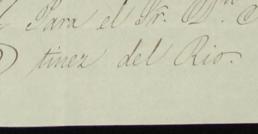 Para el Sr. Dn.
tinez del Rio.